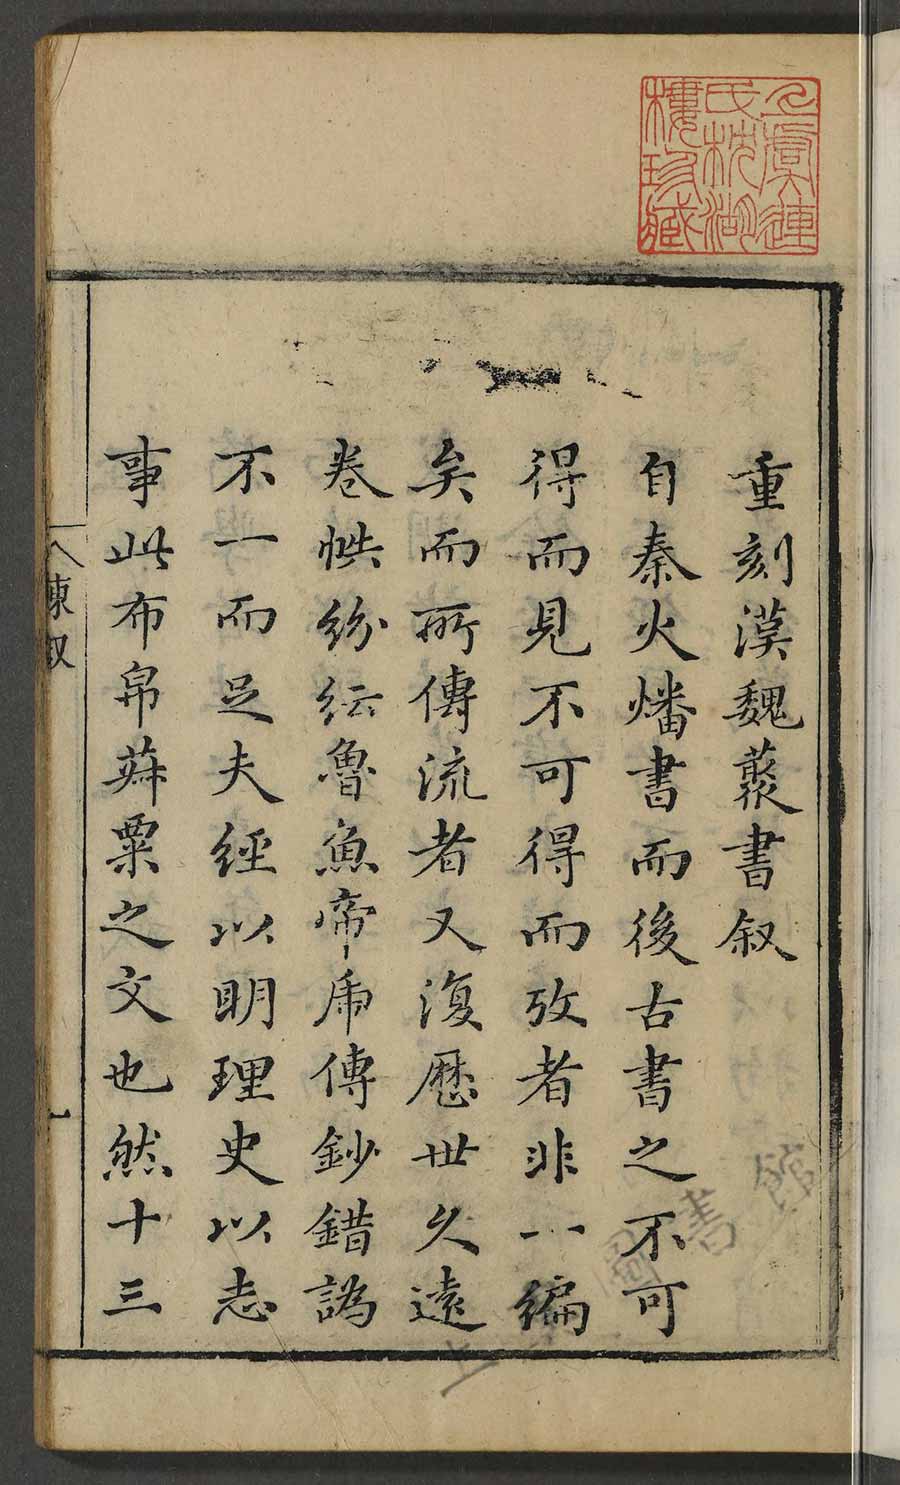 上虞連
氏枕湖
樓珍藏
重刻漢魏叢書叙
自秦火燔書而後古書之不可
得而見不可得而攷者非一編
矣而所傳流者又復歷世久遠
卷帙紛紜魯魚帝虎傳鈔錯譌
不一而足夫經以明理史以志
事此布帛菽粟之文也然十三
陳叙
一
圖書館